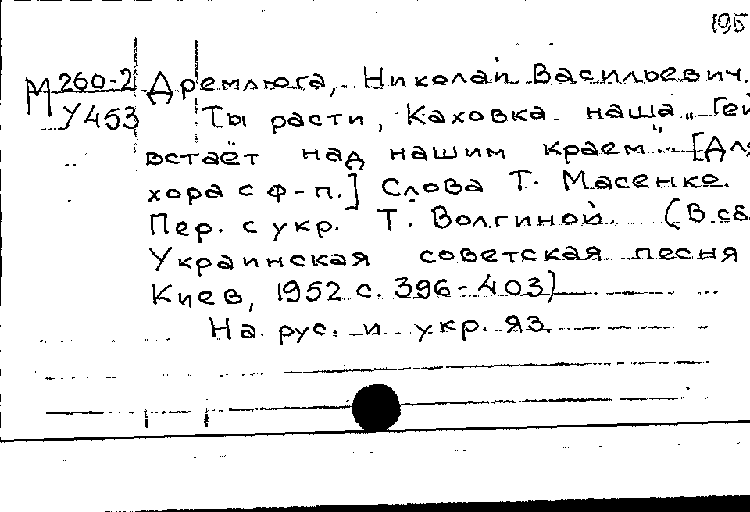 195
М 260-2 Дремлюга, Николай Васильевич.
У453 Ты расти, Каховка наша „Гей
встаёт над нашим краем". [Для
хора с ф-п.] Слова Т. Масенко.
Пер. с укр. Т. Волгиной. (В сб.
Украинская советская песня
Киев, 1952 с. 396-403)
На рус. и укр. яз.